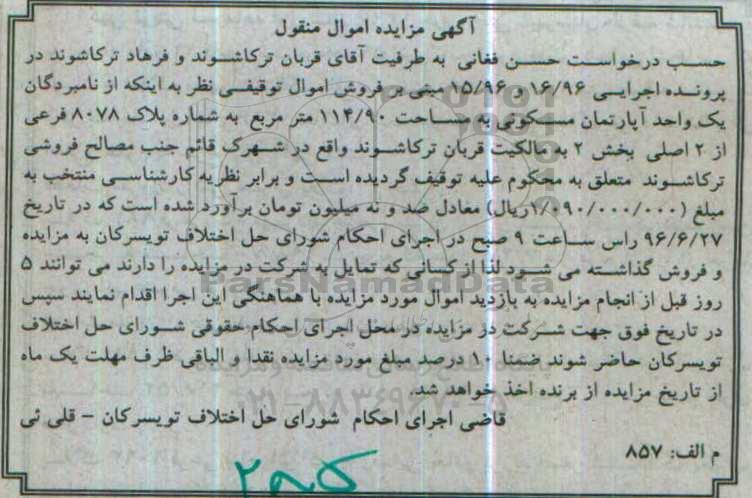 آگهی مزایده اموال منقول
حسب درخواست حسن فغانی به طرفیت آقای قربان ترکاشوند و فرهاد ترکاشوند در
پرونده اجرایی ۱۶/۹۶ و ۱۵/۹۶ مبنی بر فروش اموال توقیفی نظر به اینکه از نامبردگان
یک واحد آپارتمان مسکونی به مساحت ۱۱۴/۹۰ متر مربع به شماره پلاک ۸۰۷۸ فرعی
از ۲ اصلی بخش ۲ به مالکیت قربان ترکاشوند واقع در شهرک قائم جنب مصالح فروشی
ترکاشوند متعلق به محکوم علیه توقیف گردیده است و برابر نظریه کارشناسی منتخب به
مبلغ (۱/۰۹۰/۰۰۰/۰۰۰ریال) معادل صد و نه میلیون تومان برآورد شده است که در تاریخ
۹۶/۶/۲۷ راس ساعت ۹ صبح در اجرای احکام شورای حل اختلاف تویسرکان به مزایده
و فروش گذاشته می شود لذا از کسانی که تمایل به شرکت در مزایده را دارند می توانند ۵
روز قبل از انجام مزایده به بازدید اموال مورد مزایده با هماهنگی این اجرا اقدام نمایند سپس
در تاریخ فوق جهت شرکت در مزایده در محل اجرای احکام حقوقی شورای حل اختلاف
تویسرکان حاضر شوند ضمنا ۱۰ درصد مبلغ مورد مزایده نقدا و الباقی ظرف مهلت یک ماه
از تاریخ مزایده از برنده اخذ خواهد شد.
قاضی اجرای احکام شورای حل اختلاف تویسرکان – قلی ئی
م الف: ۸۵۷
ParsNamadData
۰۲۱-۸۸۳۴۹۶۷۰-۵